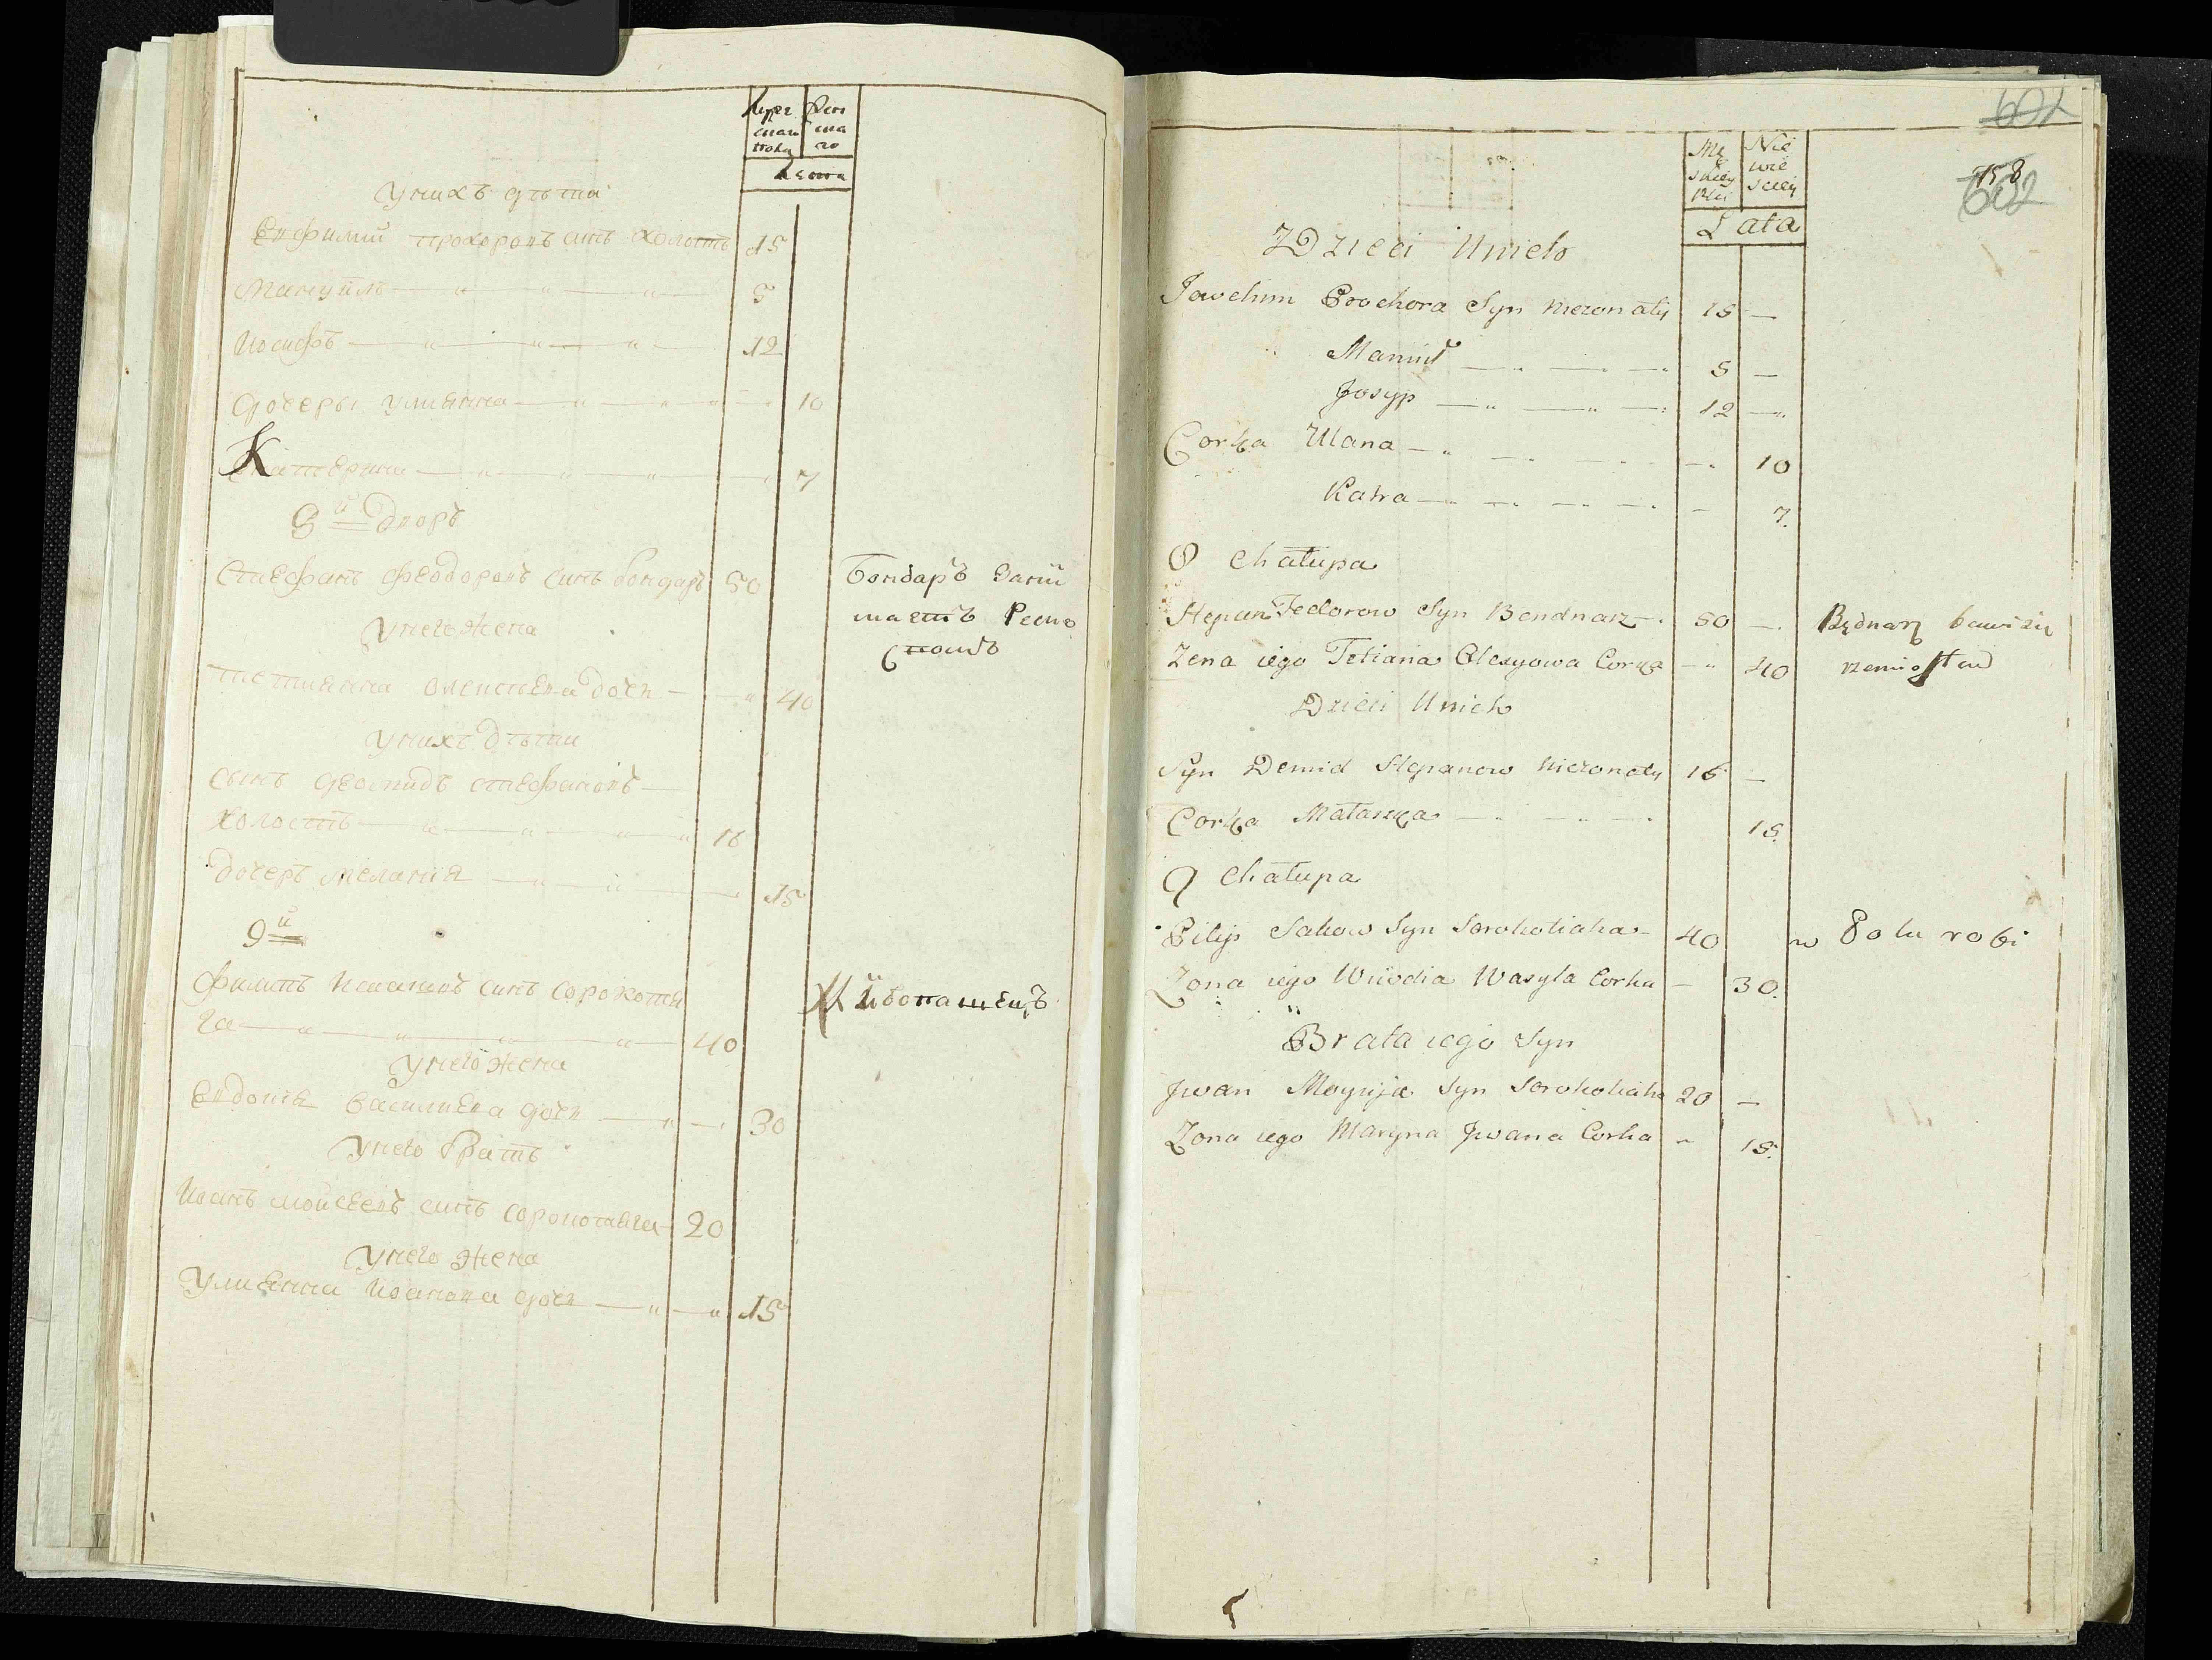 Лѣта
У нихъ дѣти
Евфимий Прохоровъ синъ холостъ 15
Мануйлъ — „ — „ — „ — 5
Иосифъ — „ — „ — „ — 12
Дочеры Улиянна — „ — „ — „ — 10
Катерина — „ — „ — „ — 7
8й Дворъ
Стефанъ Феодоровъ синъ Бондаръ 50
Бондаръ Зани
маетъ Реме
У него Жена
Тетиянна Олексиева дочь — „ 40
У нихъ Дѣти
Сынъ Деомидъ Стефановъ —
Холостъ — „ — „ — „ — „ 16
Дочеръ Мелания — „ — „ — 15
9й
Филипъ Исаковъ синъ Сорокотя
га — „ — „ — „ — „ — 40
У него Жена
Евдокия Василиева дочь — „ — 30
У него Братъ
Иванъ Мойсеевъ синъ Сорокотяга 20
У него Жена
Улиянна Иванова дочь — „ — „ 15
602
158
602
Mę
skiey
płci
Nie
wie
sciey
Lata
Dzieci Unich
Jewchim Prochora Syn niezonaty 15 —
Manuił — „ — „ — „ 5 —
Josyp — „ — „ — „ 12 — „
Corka Ulana — „ — „ — „ — „ 10
Katra — „ — „ — „ — „ — 7.
8 Chałupa
Stepan Fedorow Syn Bendnarz — „ 50 — „
Bednarz bawi się
rzemiosłem
Zena iego Tetiana Olexyowa Corka — „ 40
Dzieci Unich
Syn Demid Stepanow niezonaty 16 —
Corka Małaszka — „ — „ — „ 15
9 Chałupa
Pilip Sakow Syn Sorokotiaha — 40
w Polu robi
Zona iego Wiwdia Wasyla Corka — 30.
Brata iego Syn
Jwan Moysija Syn Sorokotiaha 20 —
Zona iego Maryna Jwana Corka „ 15.